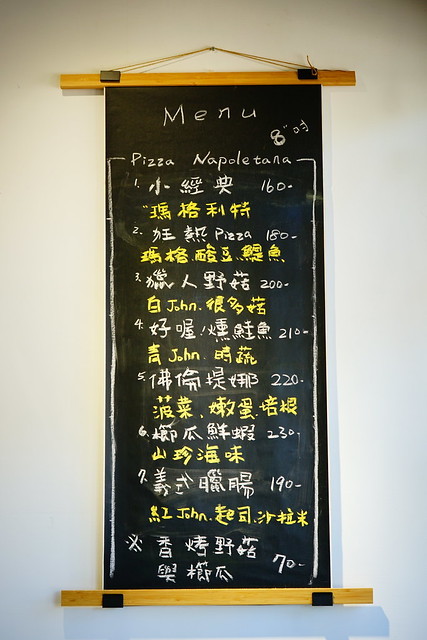 Menu
8"吋
Pizza Napoletana
1. 小經典 160-
"瑪格利特
2. 狂熱Pizza 180-
瑪格.酸豆鯷魚
3. 獵人野菇 200-
白John.很多菇
4. 好喔!燻鮭魚 210-
青John.時蔬
5. 佛倫提娜 220-
菠菜.嫩蛋.培根
6. 櫛瓜鮮蝦 230-
山珍海味
7. 義式臘腸 190-
紅John.起司.沙拉米
※ 香烤野菇
與櫛瓜 70-